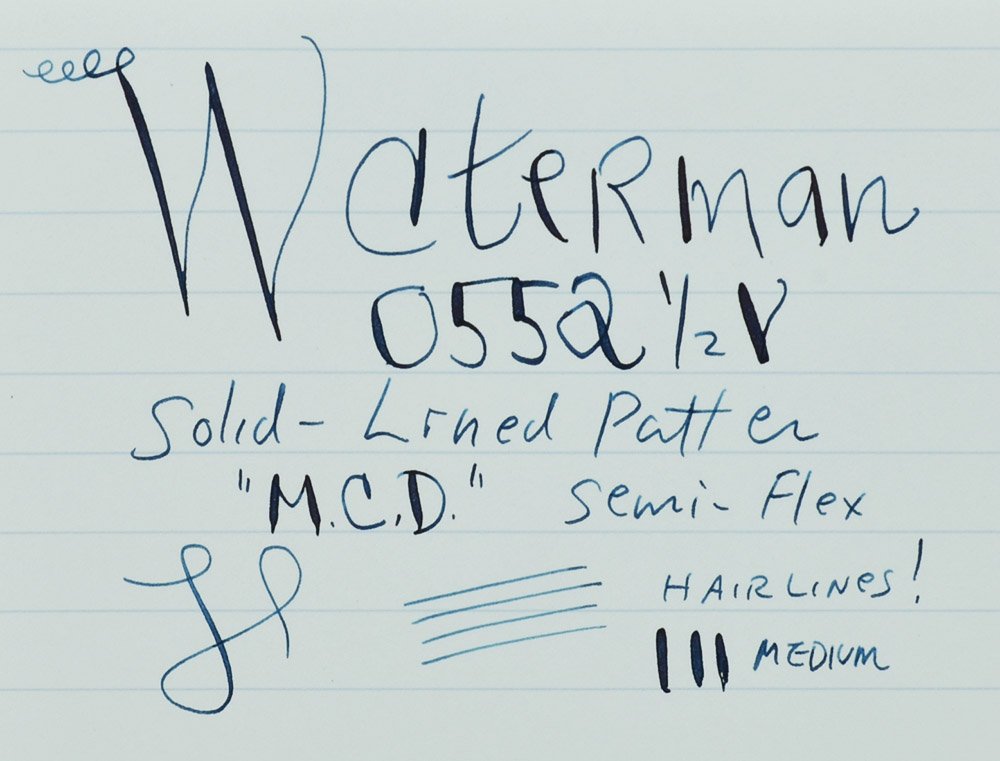 Waterman
0552 1/2 V
Solid-Lined Patter
"M.C.D." Semi-Flex
HAIRLINES!
MEDIUM